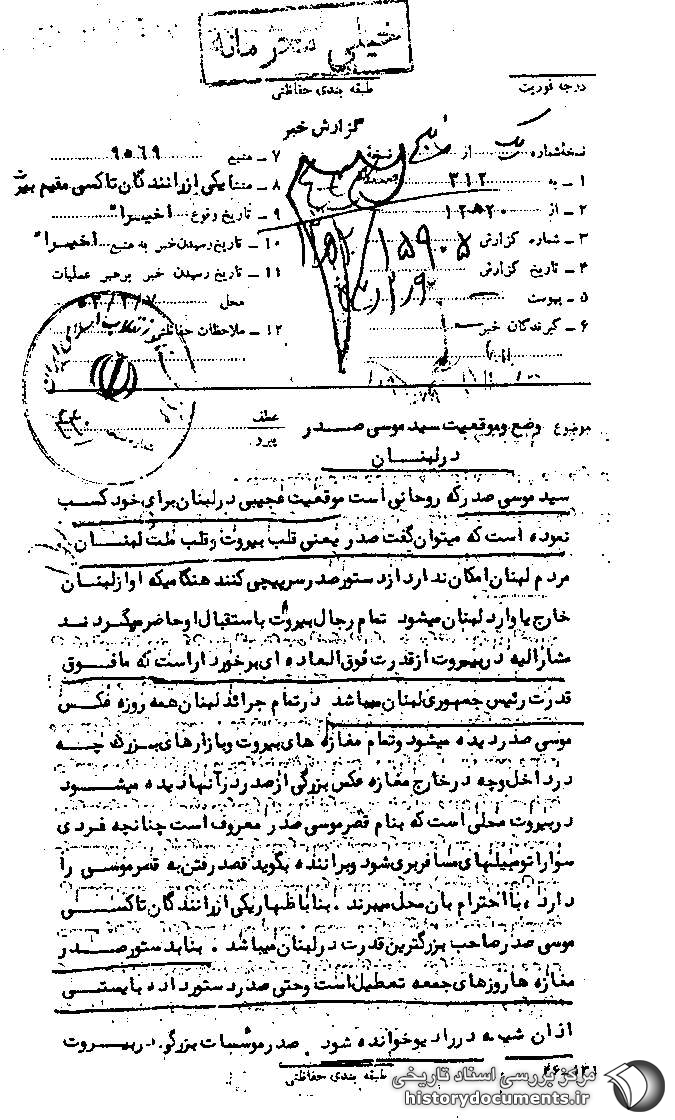 خیلی محرمانه
طبقه بندی حفاظتی
درجه فوریت
گزارش خبر
نسخه شماره یک از پنج نسخه
۱ ـ به ۳۱۲
۲ ـ از ۱۲ ۲۰
۳ ـ شماره گزارش ۱۵۹۰۵
۴ ـ تاریخ گزارش
۵ ـ پیوست
۶ ـ گیرندگان خبر
۷ ـ منبع ۹۵۶۹
۸ ـ منشا یکی از رانندگان تاکسی مقیم بیروت
۹ ـ تاریخ وقوع اخیرا"
۱۰ ـ تاریخ رسیدن خبر به منبع اخیرا"
۱۱ ـ تاریخ رسیدن خبر برهبر عملیات
محل ۵۲/۲/۷
۱۲ ـ ملاحظات حفاظتی
موضوع وضع وموقعیت سید موسی صدر
در لبنان
عطف
پیرو
سید موسی صدرکه روحانی است موقعیت عجیبی در لبنان برای خود کسب
نموده است که میتوان گفت صدر یعنی قلب بیروت وقلب ملت لبنان
مردم لبنان امکان ندارد از دستور صدر سرپیچی کنند هنگامیکه او از لبنان
خارج یا وارد لبنان میشود تمام رجال بیروت باستقبال او حاضر میگردند
مشارالیه در بیروت از قدرت فوق العاده ای برخوردار است که مافوق
قدرت رئیس جمهوری لبنان میباشد در تمام جرائد لبنان همه روزه عکس
موسی صدر دیده میشود وتمام مغازه های بیروت وبازارهای بزرگ چه
در داخل وچه در خارج مغازه عکس بزرگی از صدر در آنها دیده میشود
در بیروت محلی است که بنام قصر موسی صدر معروف است چنانچه فردی
سوار اتومبیلهای مسافربری شود وبراننده بگوید قصد رفتن به قصر موسی را
دارد ، با احترام بان محل میبرند . بنا باظهار یکی از رانندگان تاکسی
موسی صدر صاحب بزرگترین قدرت در لبنان میباشد . بنا بدستور صدر
مغازه ها روزهای جمعه تعطیل است وحتی صدر دستور داده بایستی
اذان شیعه در رادیو خوانده شود صدر موسسات بزرگی در بیروت
طبقه بندی حفاظتی
۲۶-۱۳۱
مرکز بررسی اسناد تاریخی
historydocuments.ir